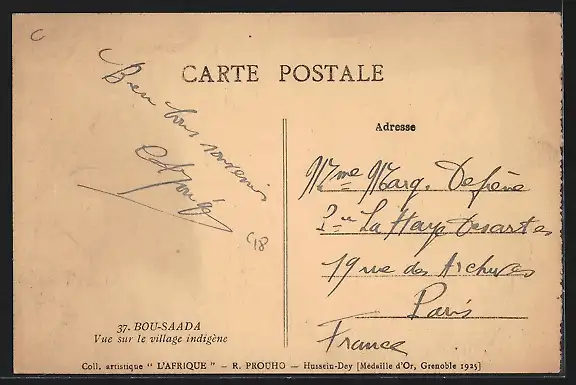 CARTE POSTALE
Bien bons souvenirs
Adresse
Mme Marg.
La Haye Descartes
19 rue des Archives
Paris
France
37. BOU-SAADA
Vue sur le village indigène
Coll. artistique " L'AFRIQUE " – R. PROUHO – Hussein-Dey [Médaille d'Or, Grenoble 1925]